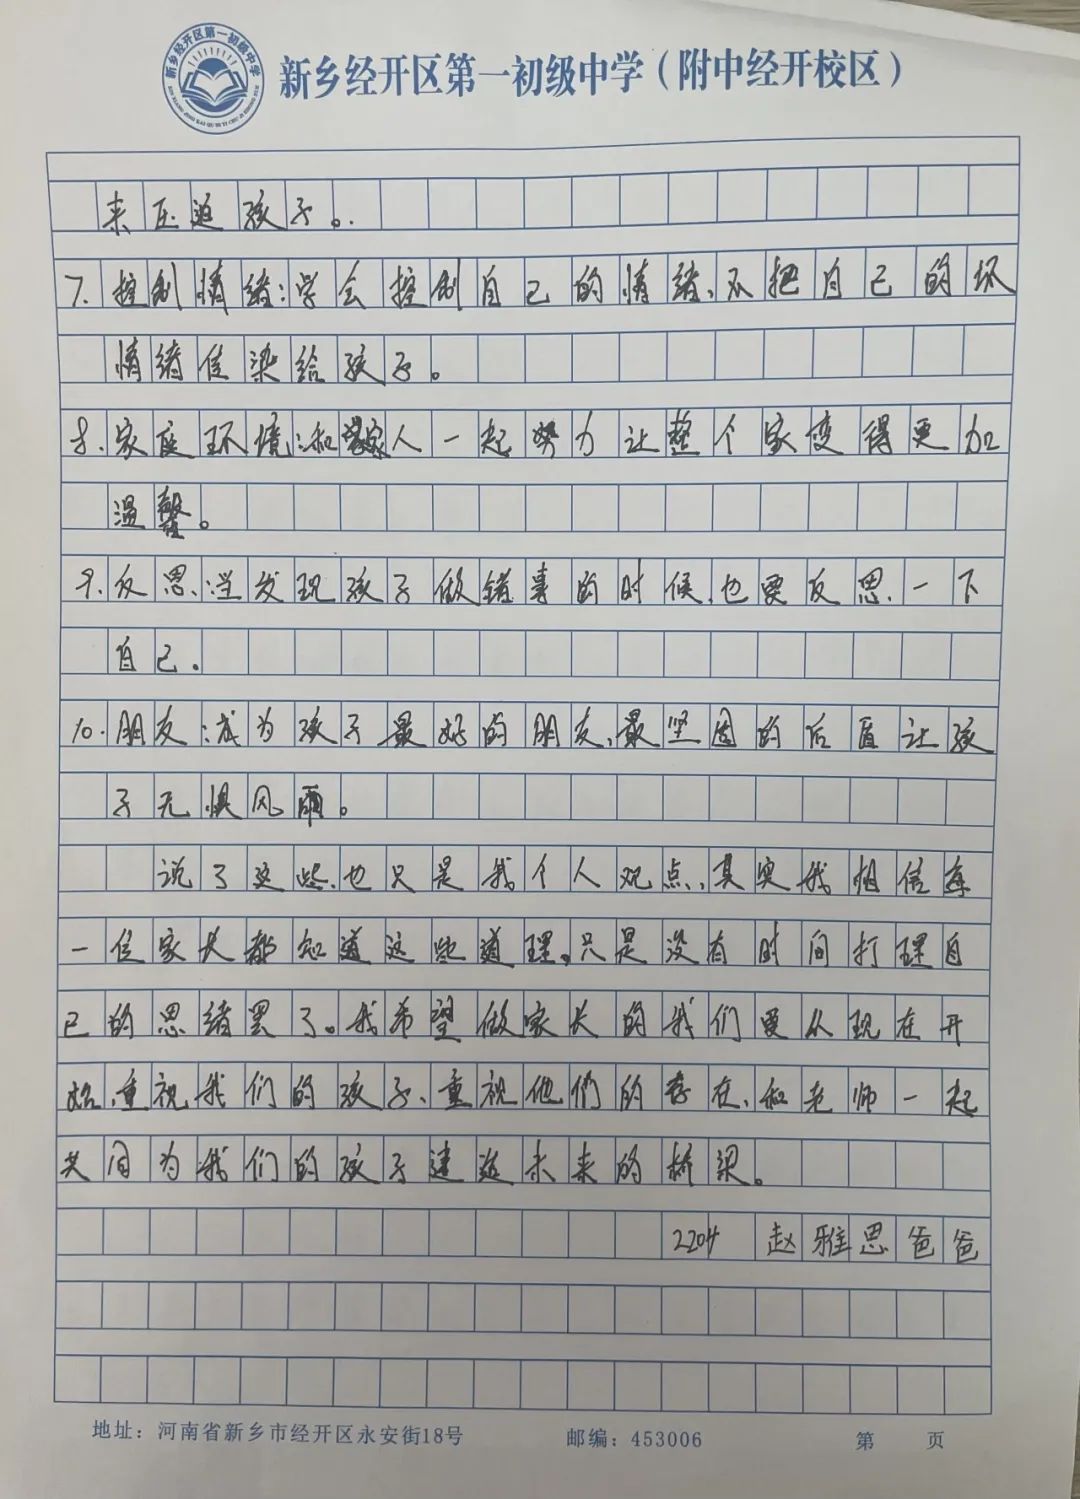 新乡经开区第一初级中学
新乡经开区第一初级中学（附中经开校区）
来压迫孩子。
7.控制情绪：学会控制自己的情绪、不把自己的坏
情绪传染给孩子。
8.家庭环境：和家人一起努力让整个家变得更加
温馨。
9.反思：当发现孩子做错事的时候、也要反思一下
自己.
10.朋友：成为孩子最好的朋友、最坚固的后盾让孩
子无惧风雨。
说了这些、也只是我个人观点、其实我相信每
一位家长都知道这些道理。只是没有时间打理自
己的思绪罢了。我希望做家长的我们要从现在开
始、重视我们的孩子、重视他们的存在、和老师一起
共同为我们的孩子建造未来的桥梁。
2204 赵雅思爸爸
地址：河南省新乡市经开区永安街18号 邮编：453006 第 页